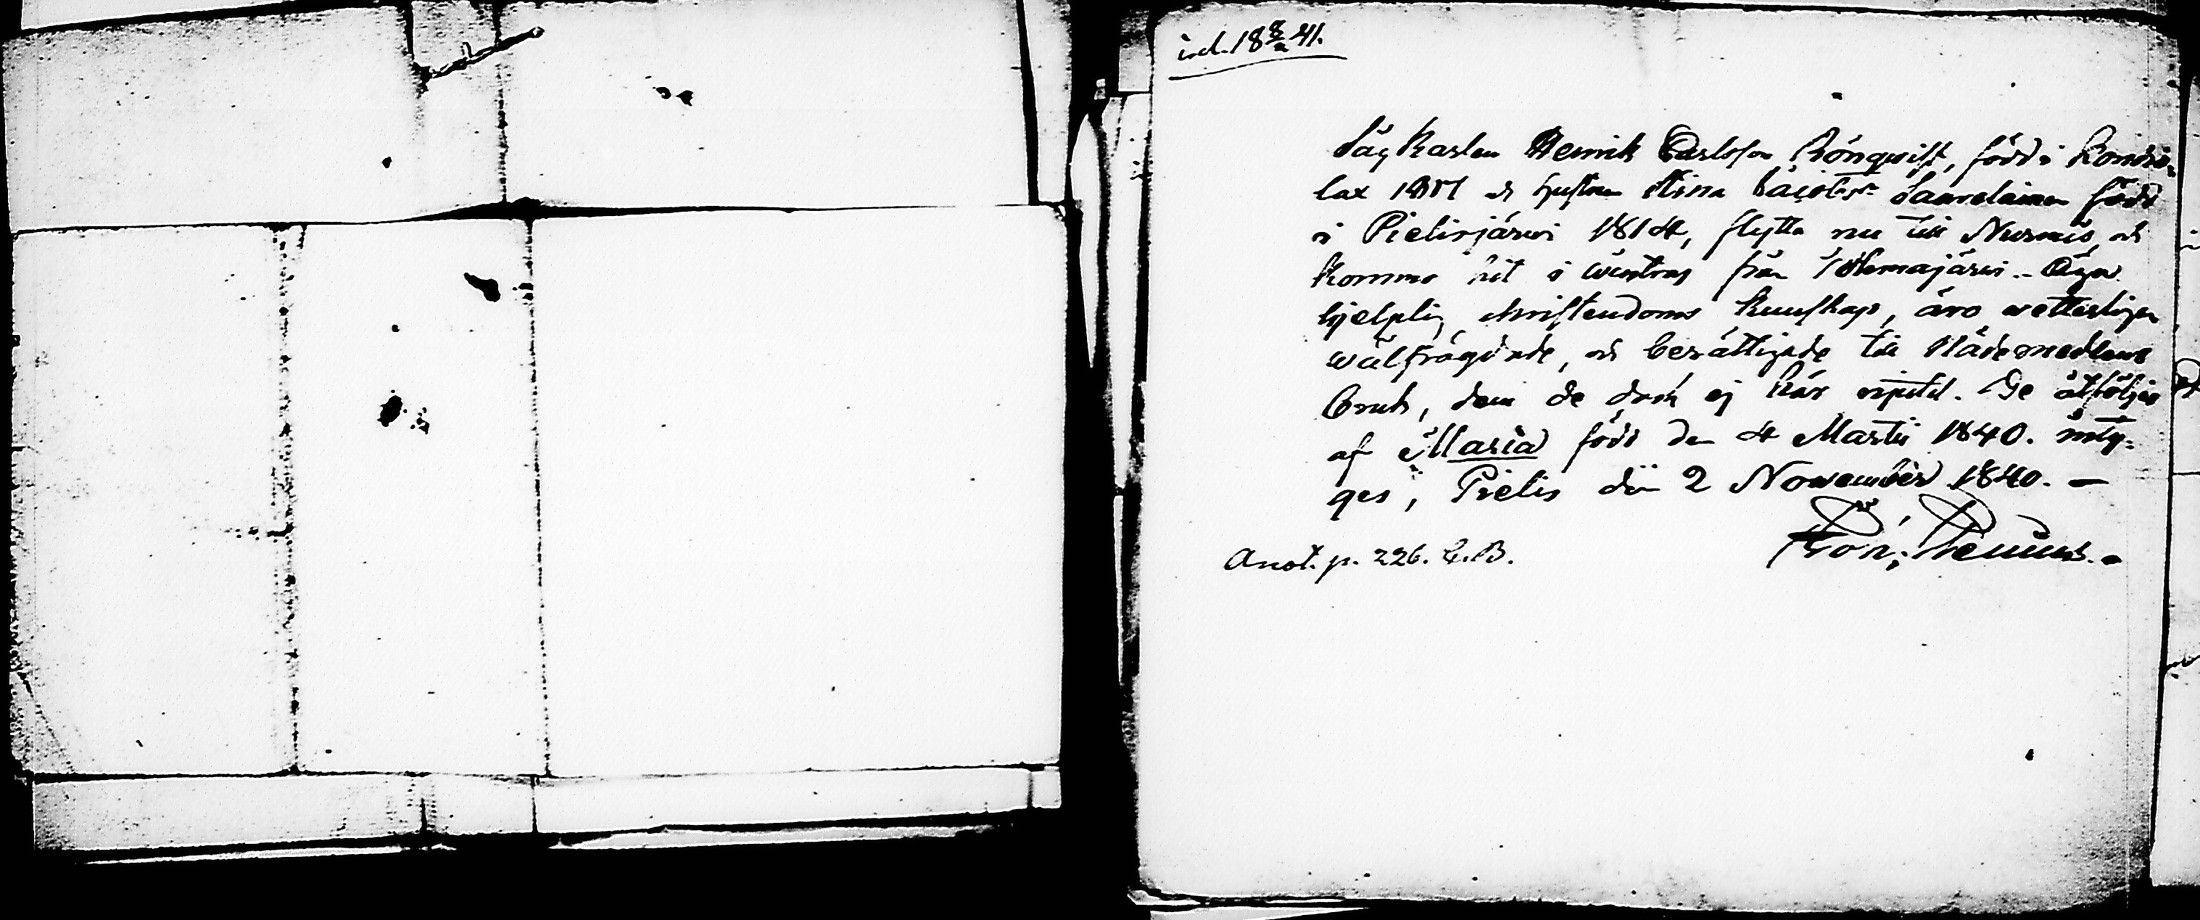 inl. 18 8/2 41.
Sågkarlen Henrik Carlsson Rönqvist, född i Kondio-
lax 1811 och hustrun Stina Saarelainen född
i Pielisjärwi 1814, flytta nu till Nurmis, och
kommo hit i wintras från Ilomajärwi. - Äga
hjelplig christendoms kunskap, äro wetterligen
wälfrägdade, och berättigade till Nådemedlens
bruk, dem de dock ej här njutit. De åtföljas
af Maria född den 4 Martii 1840. intÿ-
gas, Pielis den 2 November 1840. -
Anot. p. 226. C. B.